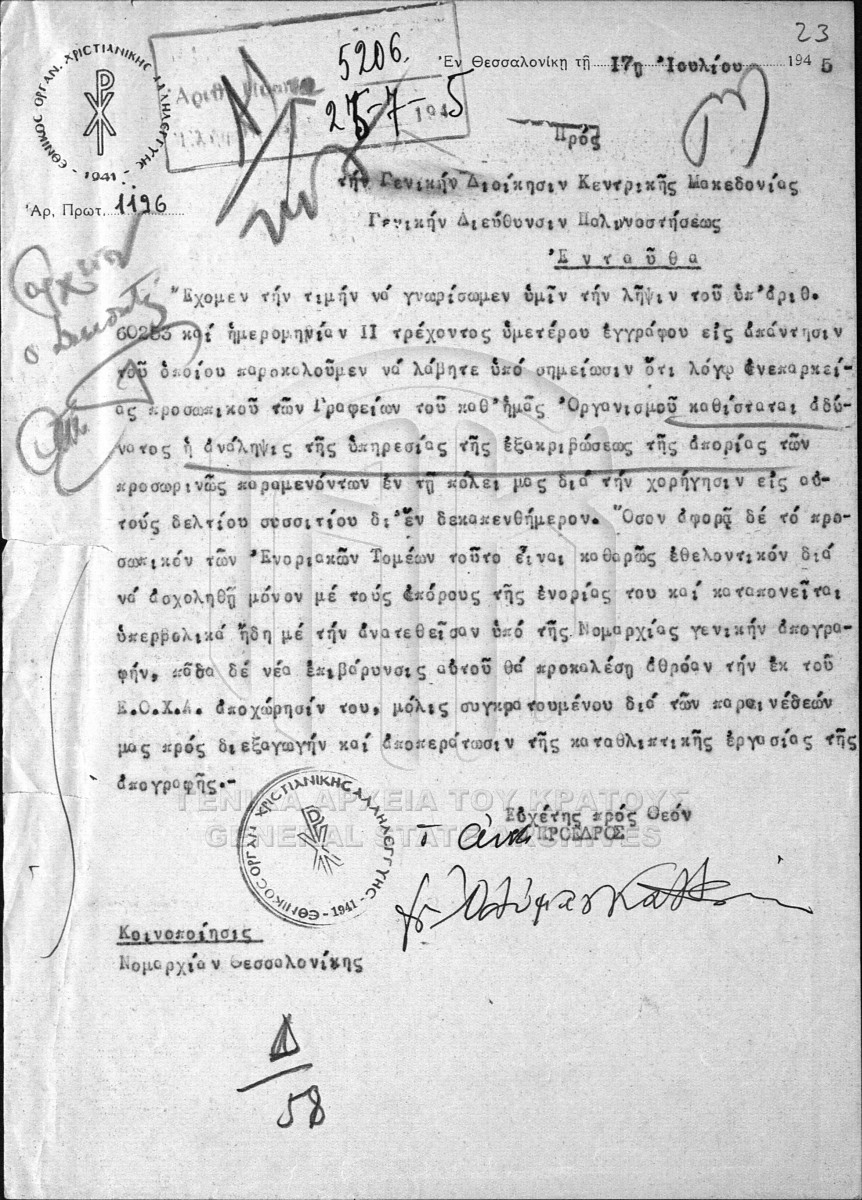 23
ΕΘΝΙΚΟΣ ΟΡΓΑΝ. ΧΡΙΣΤΙΑΝΙΚΗΣ ΑΛΛΗΛΕΓΓΥΗΣ
- 1941 -
5206.
Ἀριθ.
25-7-1945
Ἐν Θεσσαλονίκη τῇ 17η Ἰουλίου 1945
Πρός
Ἀρ. Πρωτ. 1196
τήν Γενικήν Διοίκησιν Κεντρικῆς Μακεδονίας
Γενικήν Διεύθυνσιν Παλιννοστήσεως
Ἐνταῦθα
Ἔχομεν τήν τιμήν νά γνωρίσωμεν ὑμῖν τήν λῆψιν τοῦ ὑπ'ἀριθ.
60285 καί ἡμερομηνίαν ΙΙ τρέχοντος ὑμετέρου ἐγγράφου εἰς ἀπάντησιν
τοῦ ὁποίου παρακαλοῦμεν νά λάβητε ὑπό σημείωσιν ὅτι λόγῳ ἀνεπαρκεί-
ας προσωπικοῦ τῶν Γραφείων τοῦ καθ'ἡμᾶς Ὀργανισμοῦ καθίσταται ἀδύ-
νατος ἡ ἀνάληψις τῆς ὑπηρεσίας τῆς ἐξακριβώσεως τῆς ἀπορίας τῶν
προσωρινῶς παραμενόντων ἐν τῇ πόλει μας διά τήν χορήγησιν εἰς αὐ-
τούς δελτίου συσσιτίου δι'ἕν δεκαπενθήμερον. Ὅσον ἀφορᾷ δέ τό προ-
σωπικόν τῶν Ἐνοριακῶν Τομέων τοῦτο εἶναι καθαρῶς ἐθελοντικόν διά
νά ἀσχοληθῇ μόνον μέ τούς ἀπόρους τῆς ἐνορίας του καί καταπονεῖται
ὑπερβολικά ἤδη μέ τήν ἀνατεθεῖσαν ὑπό τῆς Νομαρχίας γενικήν ἀπογρα-
φήν, πᾶσα δέ νέα ἐπιβάρυνσις αὐτοῦ θά προκαλέσῃ ἀθρόαν τήν ἐκ τοῦ
Ε.Ο.Χ.Α. ἀποχώρησίν του, μόλις συγκρατουμένου διά τῶν παραινέσεών
μας πρός διεξαγωγήν καί ἀποπεράτωσιν τῆς καταθλιπτικῆς ἐργασίας τῆς
ἀπογραφῆς.-
ΓΕΝΙΚΑ ΑΡΧΕΙΑ ΤΟΥ ΚΡΑΤΟΥΣ
GENERAL STATE ARCHIVES
Εὐχέτης πρός Θεόν
ΠΡΟΕΔΡΟΣ
ΕΘΝΙΚΟΣ ΟΡΓΑΝ. ΧΡΙΣΤΙΑΝΙΚΗΣ ΑΛΛΗΛΕΓΓΥΗΣ
- 1941 -
Κοινοποίησις
Νομαρχίαν Θεσσαλονίκης
Δ
58